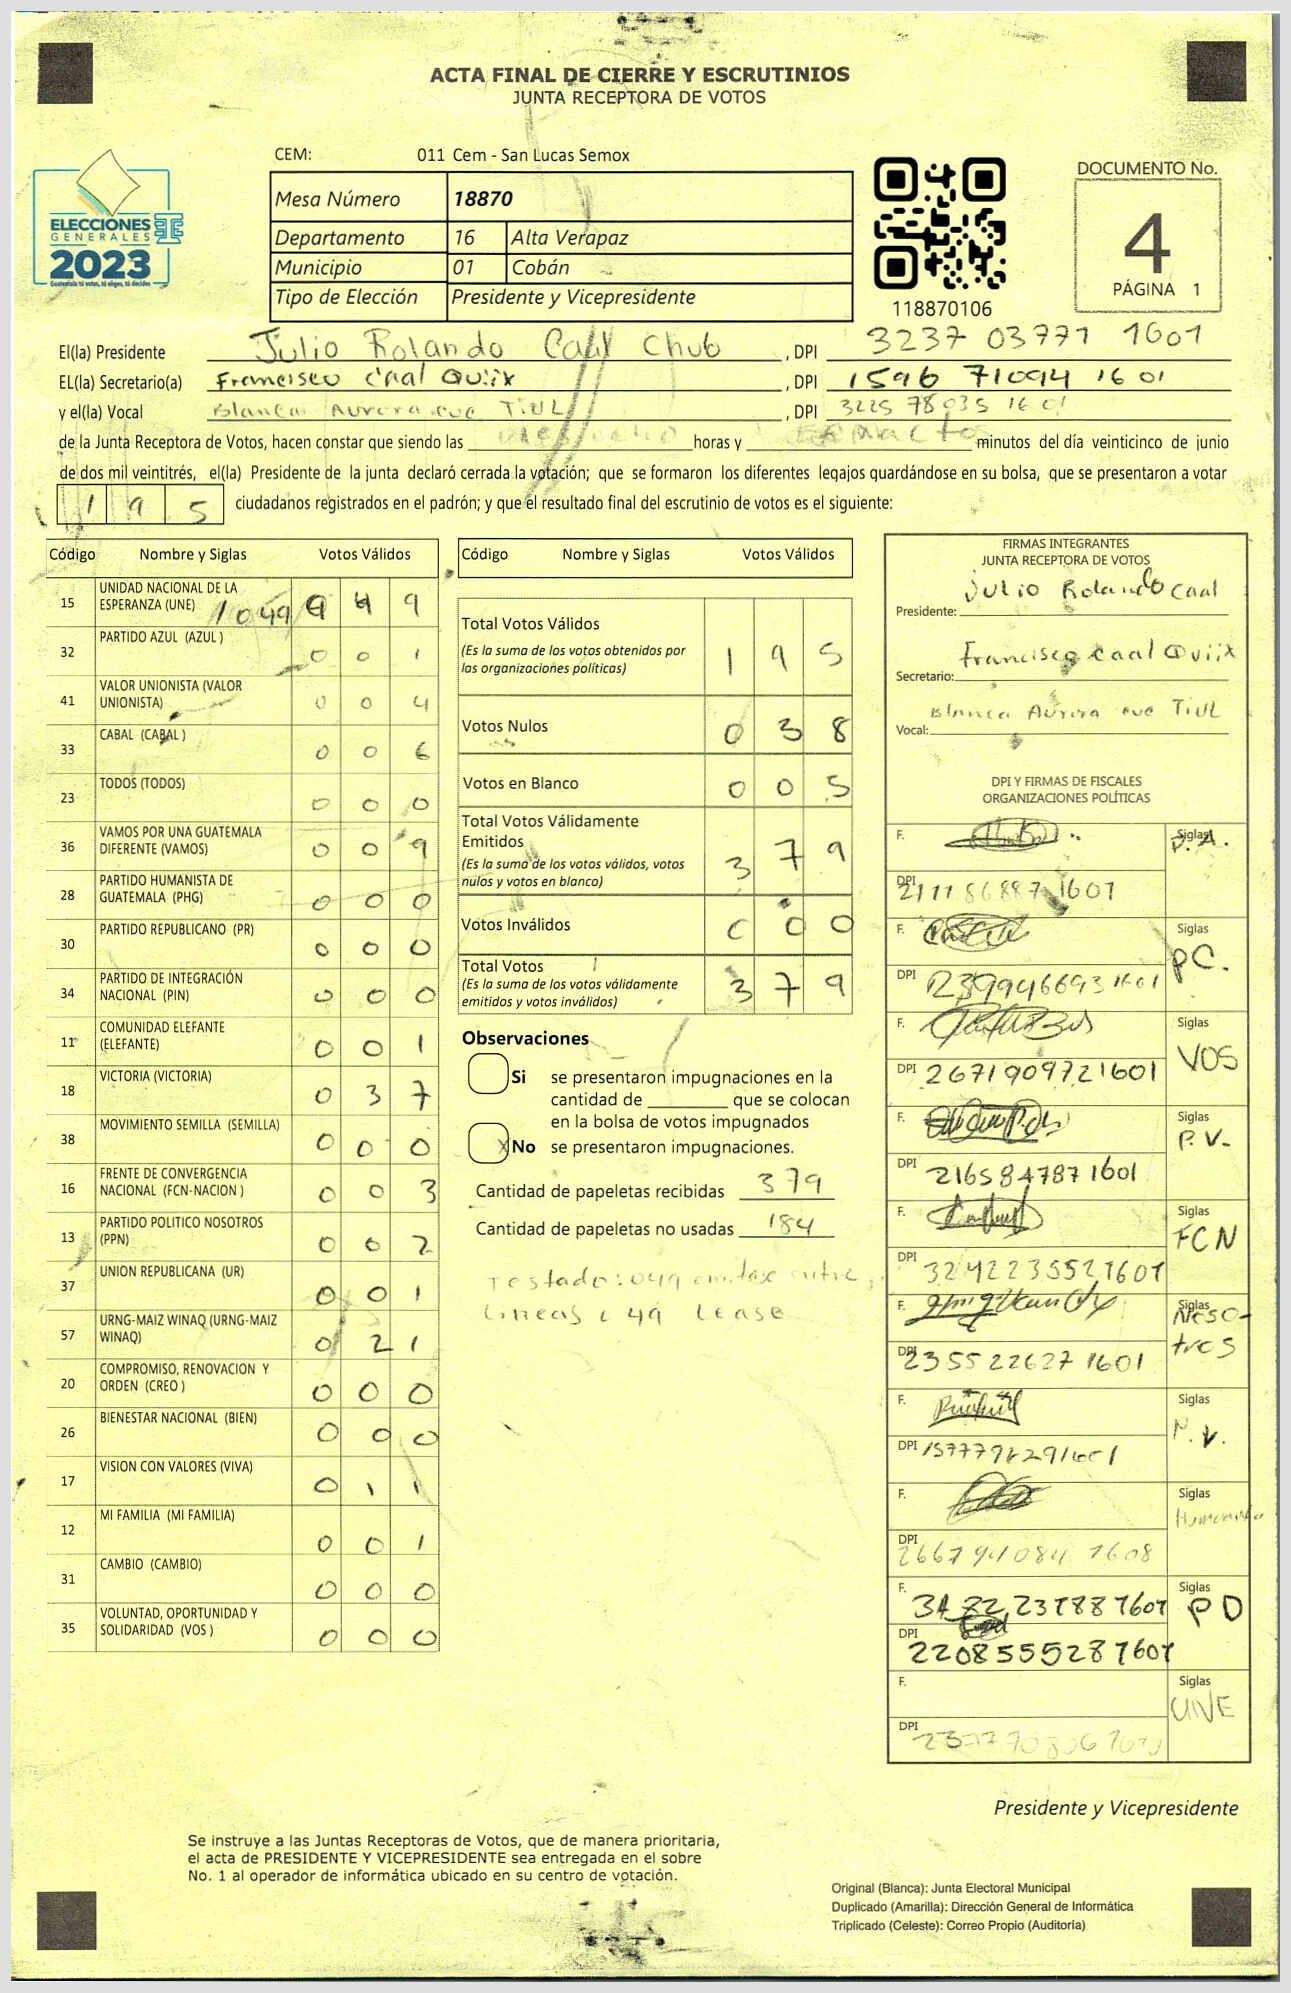 ACTA FINAL DE CIERRE Y ESCRUTINIOS
JUNTA RECEPTORA DE VOTOS
CEM: 011 Cem - San Lucas Semox
DOCUMENTO No.
4
PÁGINA 1
ELECCIONES
GENERALES
2023
Guatemala tú votas, tú eliges, tú decides
Mesa Número 18870
Departamento 16 Alta Verapaz
Municipio 01 Cobán
Tipo de Elección Presidente y Vicepresidente
118870106
El(la) Presidente Julio Rolando Caal Chub , DPI 3237 03771 1601
EL(la) Secretario(a) Francisco Caal Quiix , DPI 1596 71094 1601
y el(la) Vocal Blanca Aurora TiUL , DPI 3225 78035 1601
de la Junta Receptora de Votos, hacen constar que siendo las horas y minutos del día veinticinco de junio
de dos mil veintitrés, el(la) Presidente de la junta declaró cerrada la votación; que se formaron los diferentes legajos quardándose en su bolsa, que se presentaron a votar
195 ciudadanos registrados en el padrón; y que el resultado final del escrutinio de votos es el siguiente:
Código Nombre y Siglas Votos Válidos
15 UNIDAD NACIONAL DE LA
ESPERANZA (UNE) 1049 9
32 PARTIDO AZUL (AZUL ) 0 0 1
41 VALOR UNIONISTA (VALOR
UNIONISTA) 0 0 4
33 CABAL (CABAL ) 0 0 6
23 TODOS (TODOS) 0 0 0
36 VAMOS POR UNA GUATEMALA
DIFERENTE (VAMOS) 0 0 9
28 PARTIDO HUMANISTA DE
GUATEMALA (PHG) 0 0 0
30 PARTIDO REPUBLICANO (PR) 0 0 0
34 PARTIDO DE INTEGRACIÓN
NACIONAL (PIN) 0 0 0
11 COMUNIDAD ELEFANTE
(ELEFANTE) 0 0 1
18 VICTORIA (VICTORIA) 0 3 7
38 MOVIMIENTO SEMILLA (SEMILLA) 0 0 0
16 FRENTE DE CONVERGENCIA
NACIONAL (FCN-NACION ) 0 0 3
13 PARTIDO POLITICO NOSOTROS
(PPN) 0 0 2
37 UNION REPUBLICANA (UR) 0 0 1
57 URNG-MAIZ WINAQ (URNG-MAIZ
WINAQ) 0 2 1
20 COMPROMISO, RENOVACION Y
ORDEN (CREO ) 0 0 0
26 BIENESTAR NACIONAL (BIEN) 0 0 0
17 VISION CON VALORES (VIVA) 0 1 1
12 MI FAMILIA (MI FAMILIA) 0 0 1
31 CAMBIO (CAMBIO) 0 0 0
35 VOLUNTAD, OPORTUNIDAD Y
SOLIDARIDAD (VOS ) 0 0 0
Código Nombre y Siglas Votos Válidos
Total Votos Válidos 1 9 5
(Es la suma de los votos obtenidos por
las organizaciones políticas)
Votos Nulos 0 3 8
Votos en Blanco 0 0 5
Total Votos Válidamente
Emitidos 3 7 9
(Es la suma de los votos válidos, votos
nulos y votos en blanco)
Votos Inválidos 0 0 0
Total Votos 3 7 9
(Es la suma de los votos válidamente
emitidos y votos inválidos)
Observaciones
Si se presentaron impugnaciones en la
cantidad de que se colocan
en la bolsa de votos impugnados
X No se presentaron impugnaciones.
Cantidad de papeletas recibidas 379
Cantidad de papeletas no usadas 184
Testado: 049 entre
lineas 49 Lease
FIRMAS INTEGRANTES
JUNTA RECEPTORA DE VOTOS
Presidente: Julio Rolando Caal
Secretario: Francisco Caal Quiix
Vocal: Blanca Aurora TiUL
DPI Y FIRMAS DE FISCALES
ORGANIZACIONES POLÍTICAS
F. Siglas P.A.
DPI 2111868871601
F. Siglas PC.
DPI 2399466931601
F. Siglas VOS
DPI 2671909721601
F. Siglas P.V.
DPI 2165847871601
F. Siglas FCN
DPI 3242235521601
F. Siglas Noso-
tros
DPI 2355226271601
F. Siglas
DPI
F. Siglas Humanista
DPI 2667940841608
F. Siglas PD
DPI 2208555281601
F. Siglas UNE
DPI
Presidente y Vicepresidente
Se instruye a las Juntas Receptoras de Votos, que de manera prioritaria,
el acta de PRESIDENTE Y VICEPRESIDENTE sea entregada en el sobre
No. 1 al operador de informática ubicado en su centro de votación.
Original (Blanca): Junta Electoral Municipal
Duplicado (Amarilla): Dirección General de Informática
Triplicado (Celeste): Correo Propio (Auditoría)